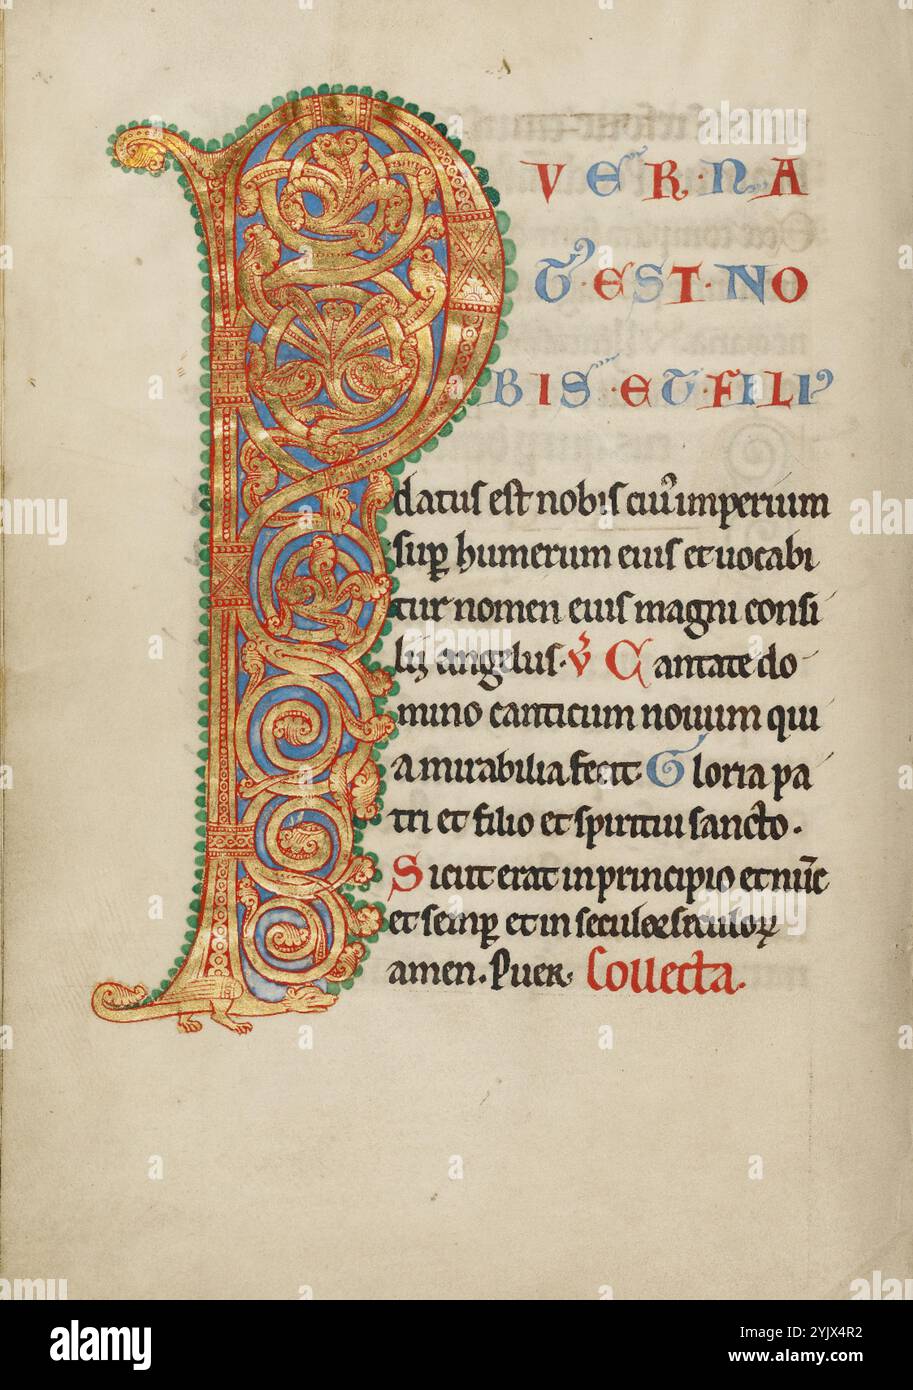 P
VER·NA
T·EST·NO
BIS·ET·FILI9
datus est nobis cui9 imperium
sup humerum eius et uocabi
tur nomen eius magni consi
lij angelus. V Cantate do
mino canticum nouum qui
a mirabilia fecit. Gloria pa
tri et filio et spiritui sancto.
Sicut erat in principio et nūc
et semp et in seculoꝝ seculoꝝ
amen. Puer. Collecta.
a alamy
alamy
Image ID: 2YJX4R2
www.alamy.com